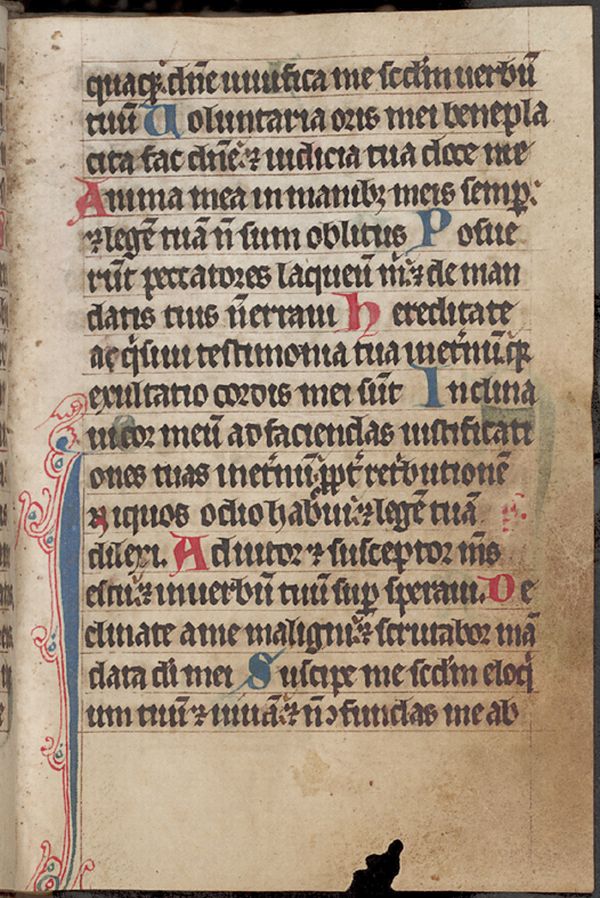 quaq; dn̄e uiuifica me scd̄m uerbū
tuū Uoluntaria oris mei benepla
cita fac dn̄e ⁊ iudicia tua doce me
Anima mea in manibꝫ meis semp̲
⁊ legē tuā n̄ sum oblitus Posue
rūt peccatores laqueū m̊ ⁊ de man
datis tuis n̄ erraui Hereditate
acq̊siui testimonia tua inet̓nū q̲
exultatio cordis mei sūt Inclina
ui cor meū ad faciendas iustificati
ones tuas inet̓nū ꝓpt̓ ret̓butionē
Iniquos odio habui ⁊ legē tuā
dilexi. Adiutor ⁊ susceptor m̄s
es tu ⁊ in uerbū tuū sup̲ speraui. De
clinate a me maligni ⁊ scrutabor mā
data di̅ mei Suscipe me scd̄m eloq̊
um tuū ⁊ uiuā ⁊ n̄ ↄfundas me ab